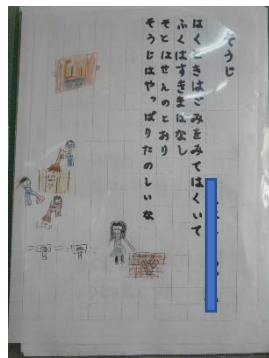 そうじ
はくときはごみをみてはくいて
ふくはすきまはなし
そとはせんのとおり
そうじはやっぱりたのしいな